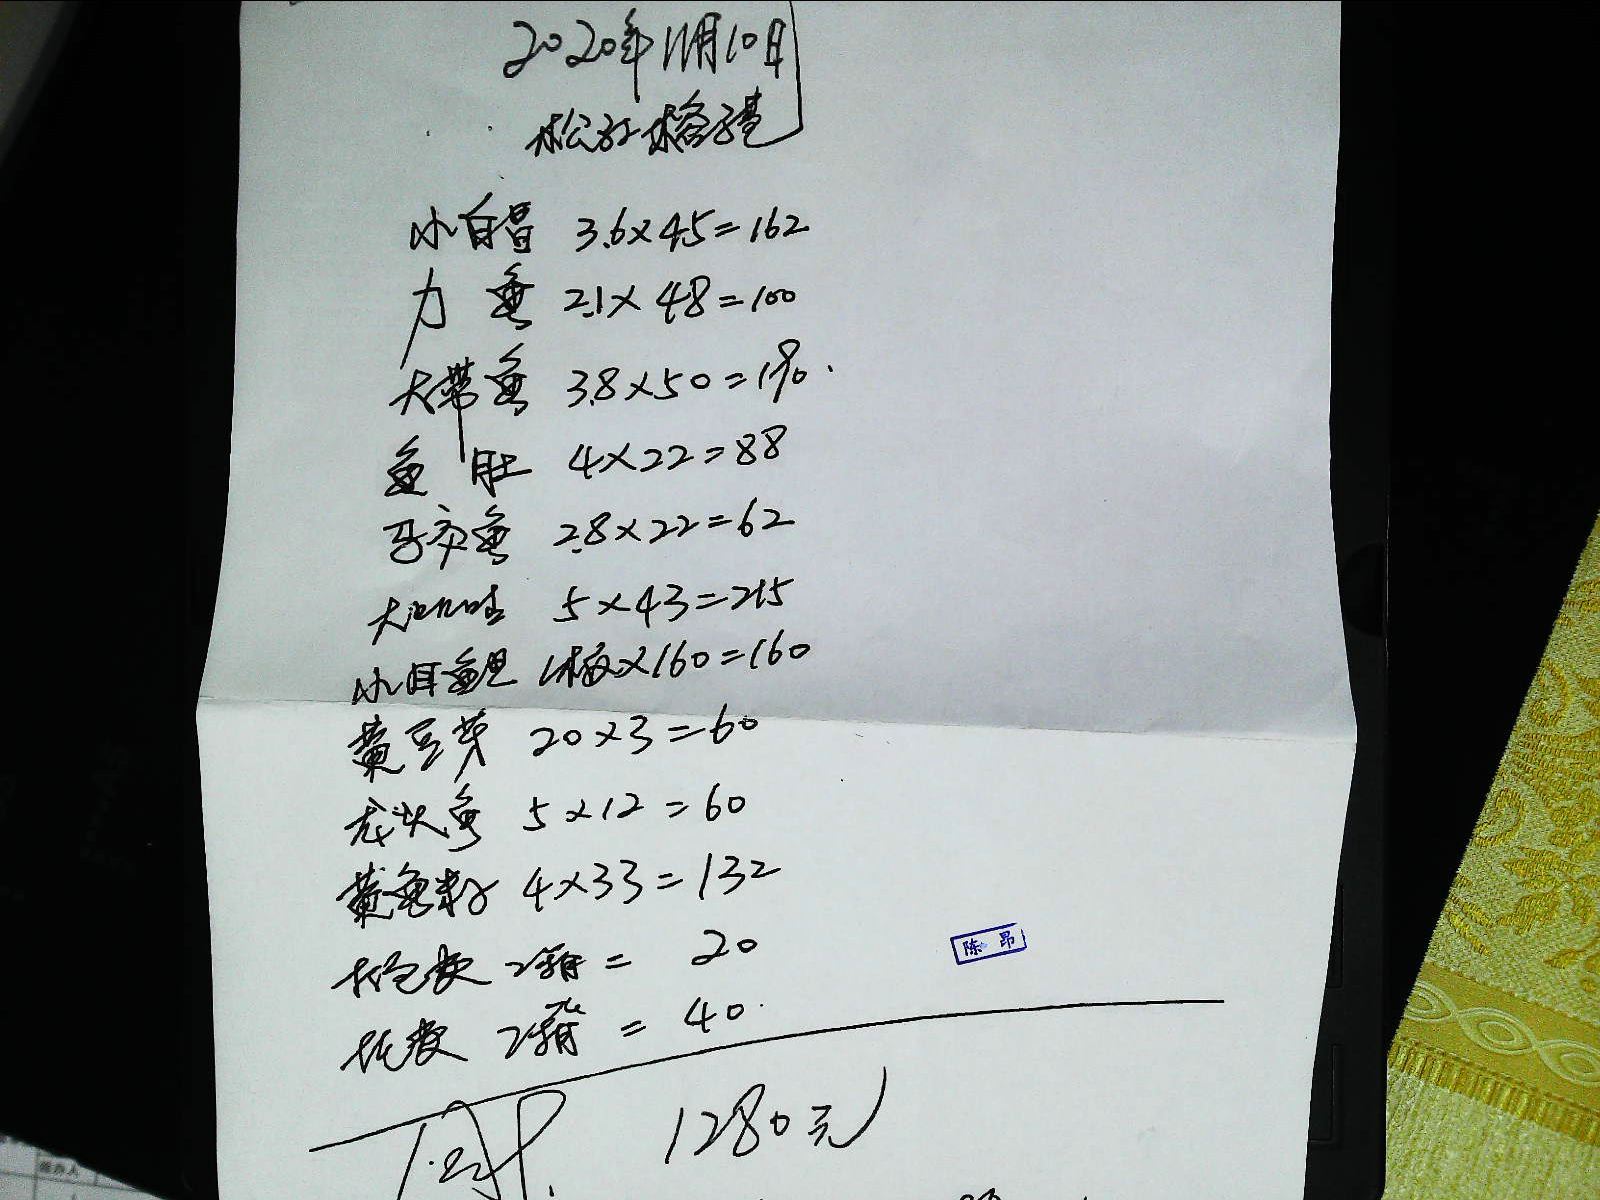 2020年11月10日
小白昌 3.6×45=162
力鱼 2.1×48=100
大带鱼 3.8×50=190.
鱼肚 4×22=88
马交鱼 2.8×22=62
大 5×43=215
小目鱼 1板×160=160
黄豆芽 20×3=60
龙头鱼 5×12=60
黄鱼籽 4×33=132
打包费 2箱= 20
托费 2箱= 40.
陈昂
1280元